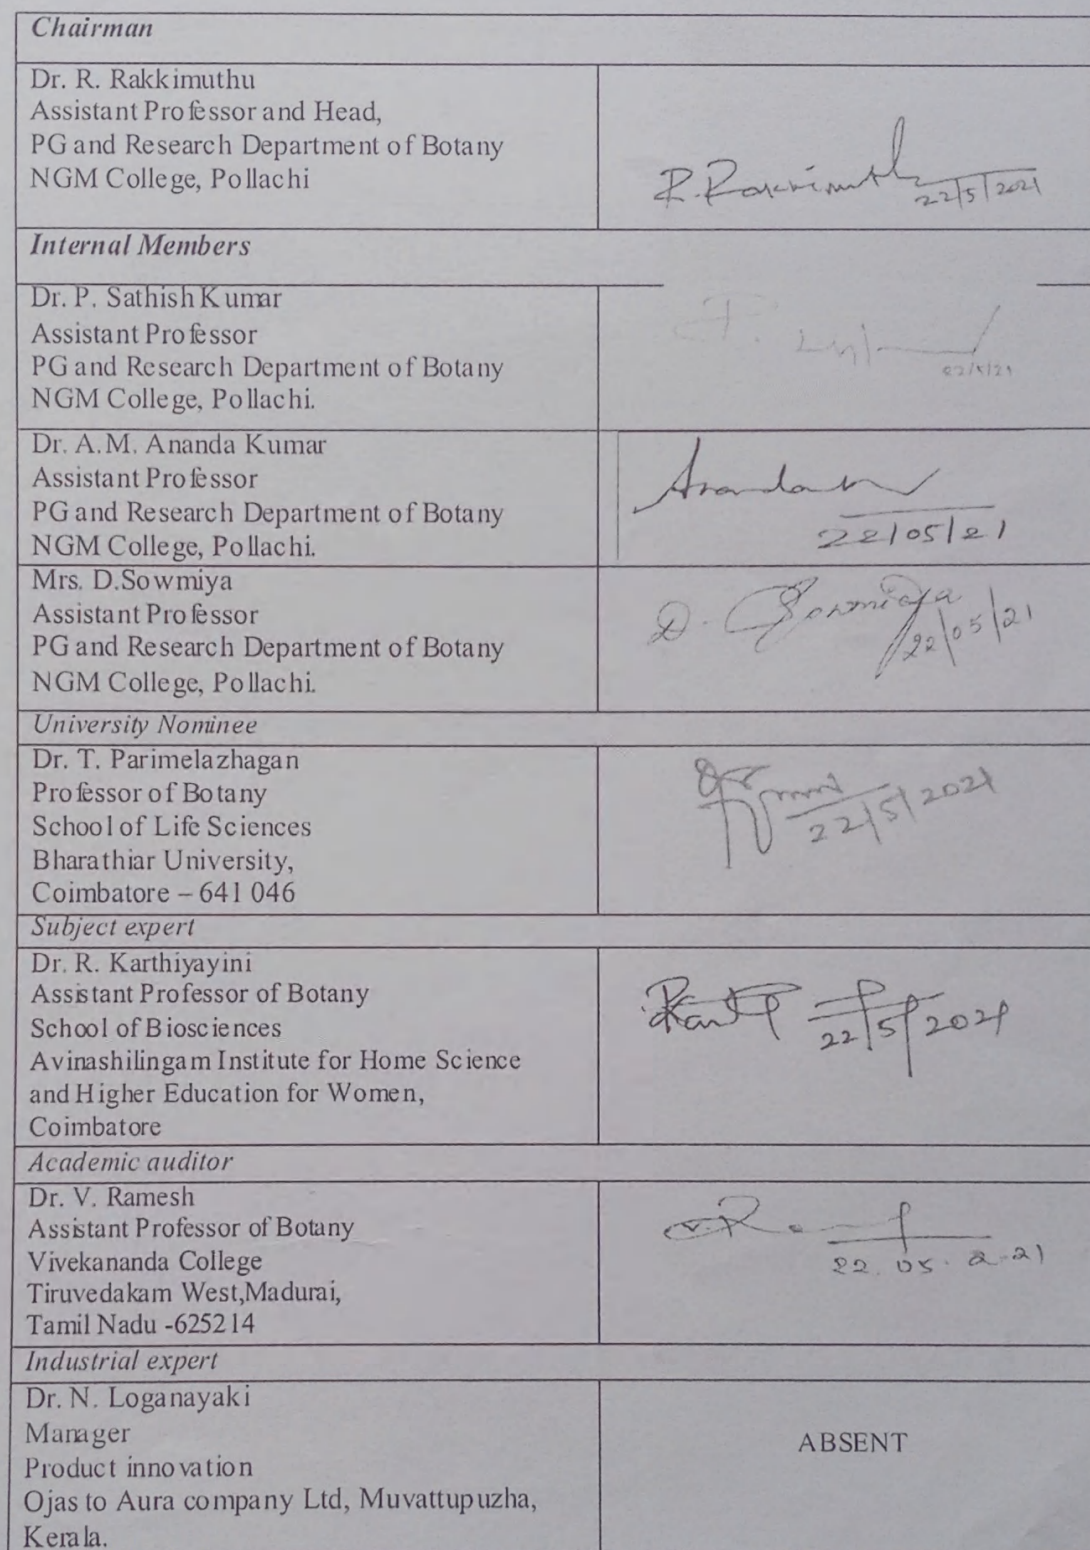 Chairman
Dr. R. Rakkimuthu
Assistant Professor and Head,
PG and Research Department of Botany
NGM College, Pollachi
R. Rakkimuth
22/5/2021
Internal Members
Dr. P. Sathish Kumar
Assistant Professor
PG and Research Department of Botany
NGM College, Pollachi.
P.
22/5/21
Dr. A.M. Ananda Kumar
Assistant Professor
PG and Research Department of Botany
NGM College, Pollachi.
22/05/21
Mrs. D.Sowmiya
Assistant Professor
PG and Research Department of Botany
NGM College, Pollachi.
D. Sowmiya
22/05/21
University Nominee
Dr. T. Parimelazhagan
Professor of Botany
School of Life Sciences
Bharathiar University,
Coimbatore – 641 046
22/5/2021
Subject expert
Dr. R. Karthiyayini
Assistant Professor of Botany
School of Biosciences
Avinashilingam Institute for Home Science
and Higher Education for Women,
Coimbatore
22/5/2021
Academic auditor
Dr. V. Ramesh
Assistant Professor of Botany
Vivekananda College
Tiruvedakam West,Madurai,
Tamil Nadu -625214
22.05.2021
Industrial expert
Dr. N. Loganayaki
Manager
Product innovation
Ojas to Aura company Ltd, Muvattupuzha,
Kerala.
ABSENT